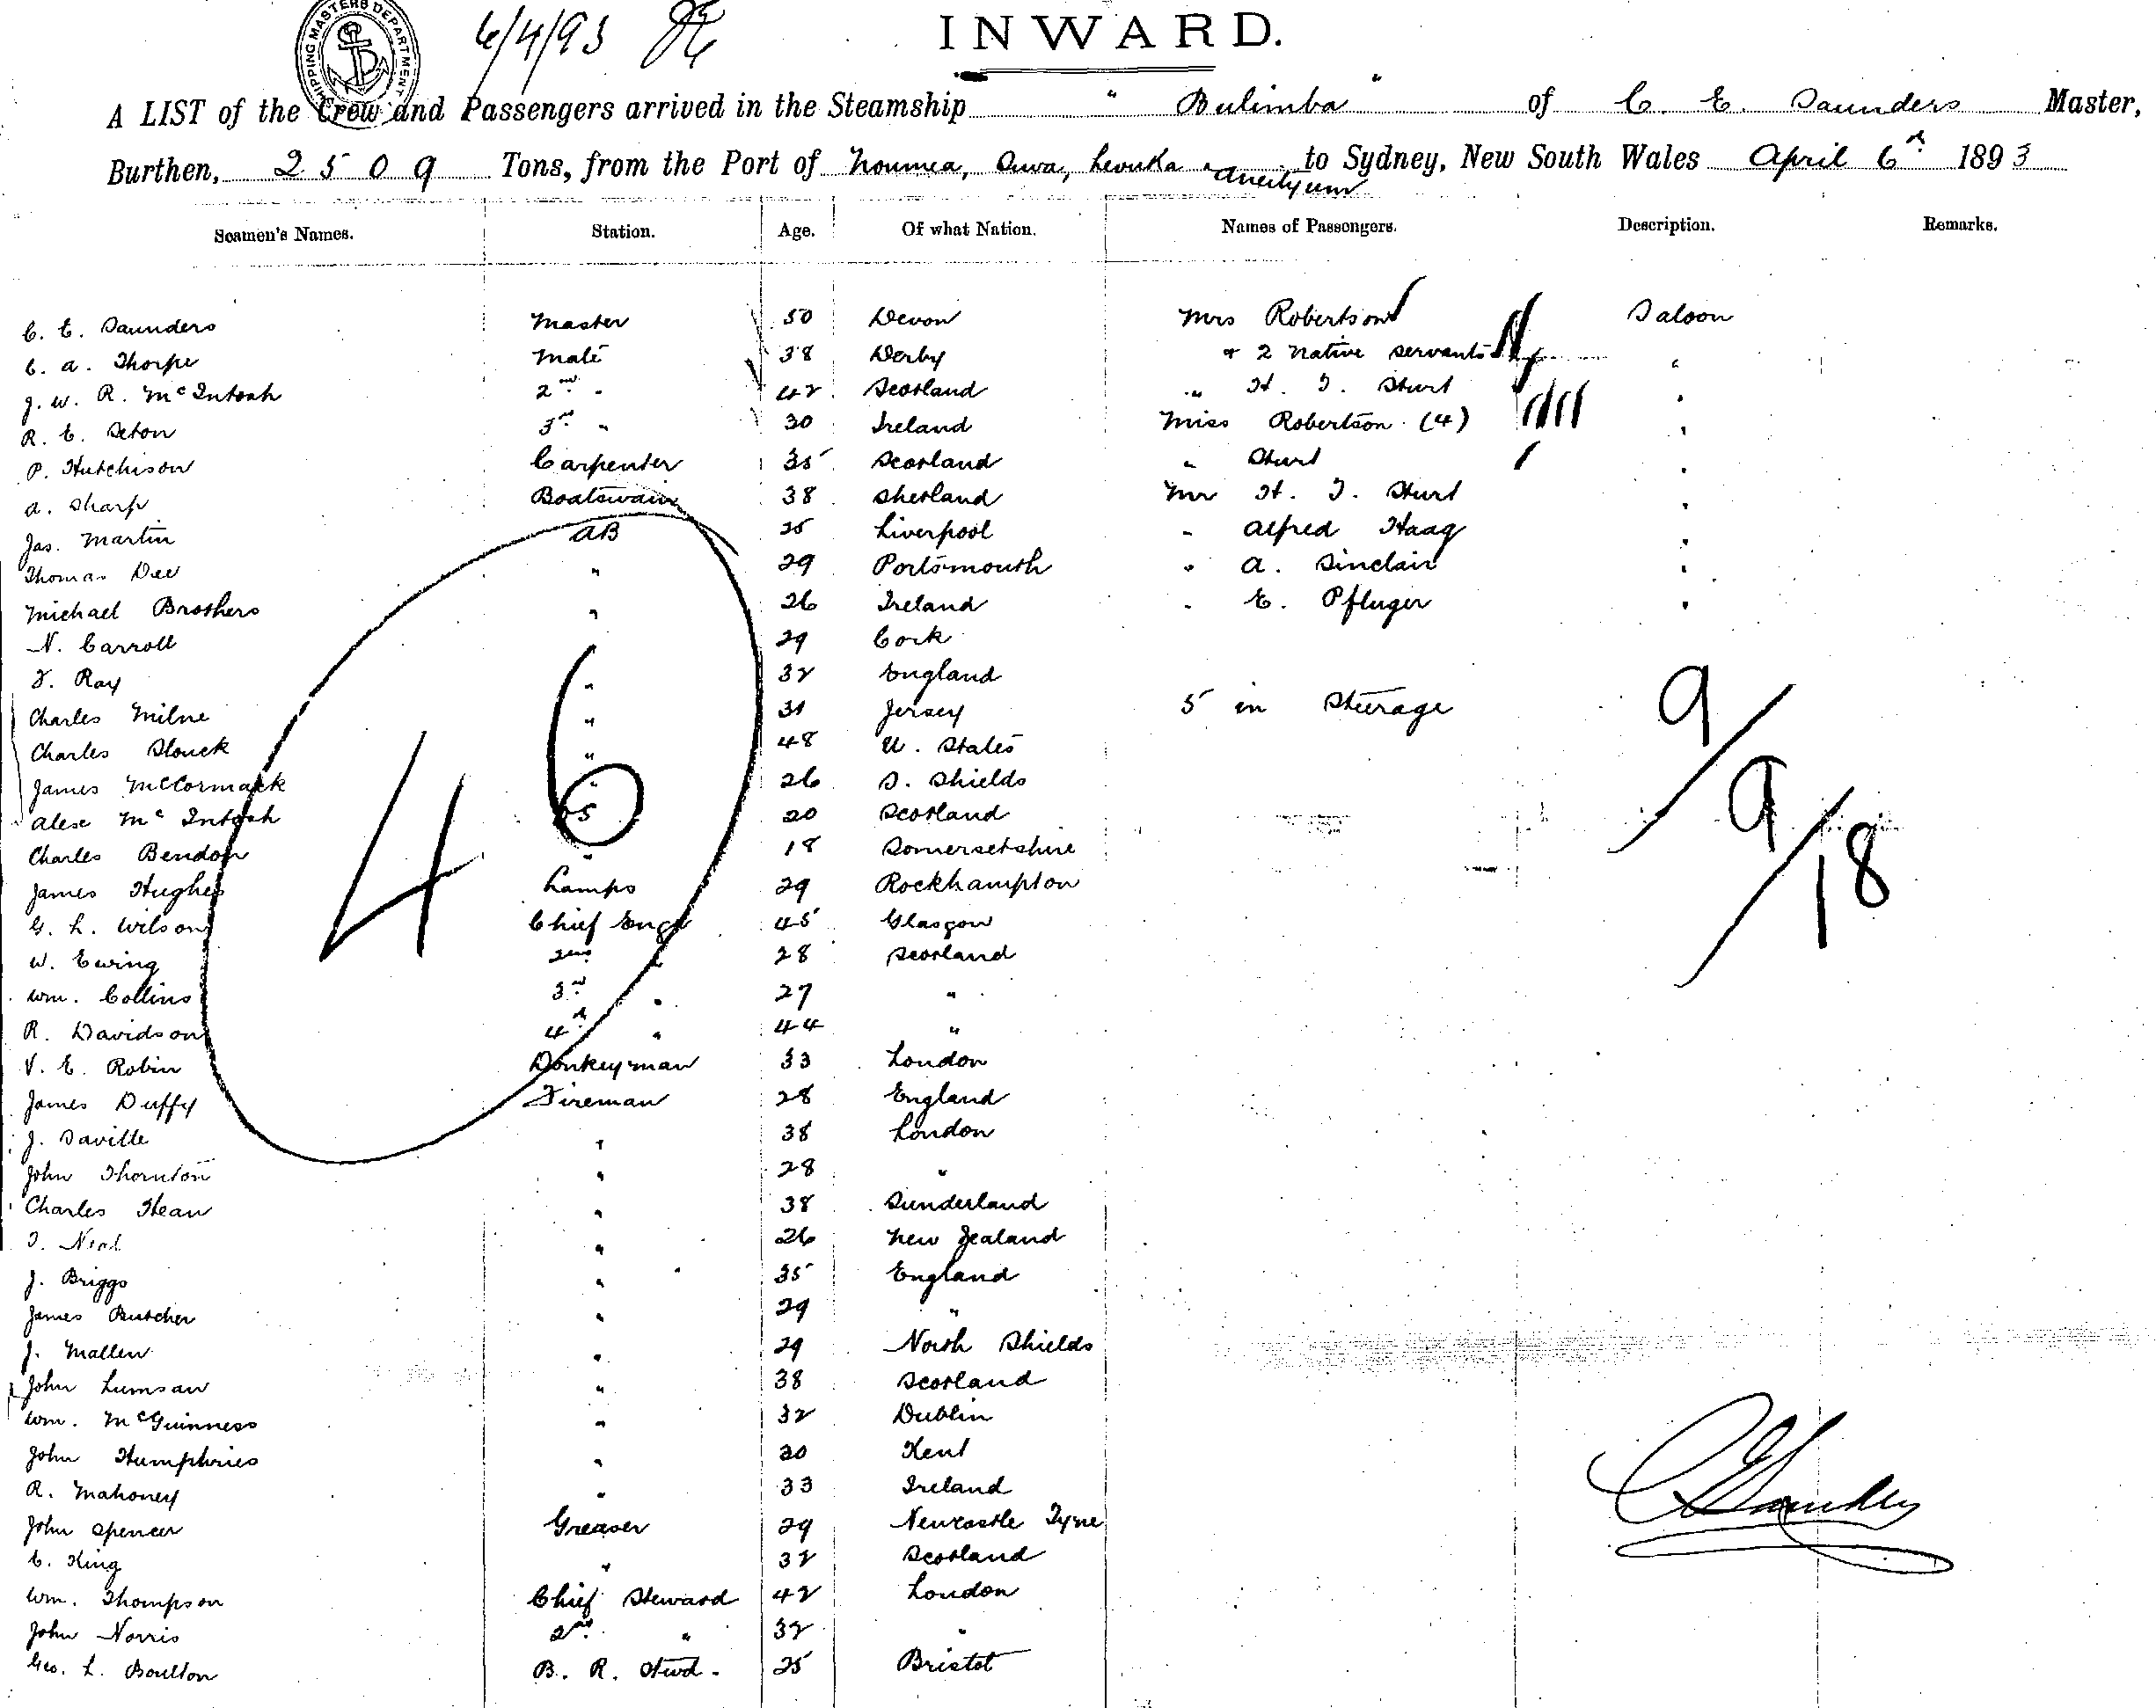 SHIPPING MASTERS DEPARTMENT
6/4/93
INWARD.
A LIST of the Crew and Passengers arrived in the Steamship "Bulimba" of C. E. Saunders Master,
Burthen, 2509 Tons, from the Port of Noumea, Suva, Levuka & Aneityum to Sydney, New South Wales April 6th 1893
Seamen's Names. Station. Age. Of what Nation. Names of Passengers. Description. Remarks.
C. E. Saunders Master 50 Devon Mrs Robertson Saloon
C. A. Thorpe Mate 38 Derby & 2 Native servants "
J. W. R. McIntosh 2nd " 42 Scotland " H. T. Sturt "
R. E. Seton 3rd " 30 Ireland Miss Robertson (4) "
P. Hutchison Carpenter 35 Scotland " Sturt "
A. Sharp Boatswain 38 Shetland Mr H. T. Sturt "
Jas. Martin AB 25 Liverpool " Alfred Haag "
Thomas Dee " 29 Portsmouth " A. Sinclair "
Michael Brothers " 26 Ireland " E. Pfluger "
N. Carroll 29 Cork
F. Ray " 32 England
Charles Milne " 31 Jersey 5 in Steerage
Charles Slouck " 48 U. States
James McCormack " 26 S. Shields
Alex McIntosh OS 20 Scotland
Charles Bendon " 18 Somersetshire
James Hughes Lamps 29 Rockhampton
G. L. Wilson Chief Engr 45 Glasgow
W. Ewing 2nd " 28 Scotland
Wm. Collins 3rd " 27 "
R. Davidson 4th " 44 "
V. E. Robin Donkeyman 33 London
James Duffy Fireman 28 England
J. Saville " 38 London
John Thornton " 28 "
Charles Hean " 38 Sunderland
T. Neal " 26 New Zealand
J. Briggs " 35 England
James Butcher " 29 "
J. Mallen " 29 North Shields
John Lumsan " 38 Scotland
Wm. McGuinness " 32 Dublin
John Humphries " 30 Kent
R. Mahoney " 33 Ireland
John Spencer Greaser 29 Newcastle Tyne
C. King " 32 Scotland
Wm. Thompson Chief Steward 42 London
John Norris 2nd " 32 "
Geo. L. Boulton B. R. Stwd. 25 Bristol
46
9/9/18
C E Saunders